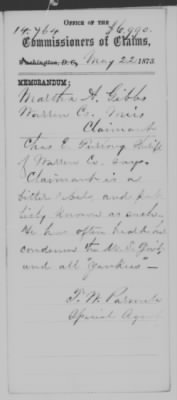 OFFICE OF THE
14,764 $6,990.
Commissioners of Claims,
Washington, D.C., May 22 1873.
MEMORANDUM:
Martha A. Gibbs
Warren Co. Miss
Claimant
Chas E. Sheriff
of Warren Co. says
Claimant is a
bitter rebel, and pub
licly known as such.
He has often heard her
condemn the U.S. Govt
and all "Yankees" —
Special Agent